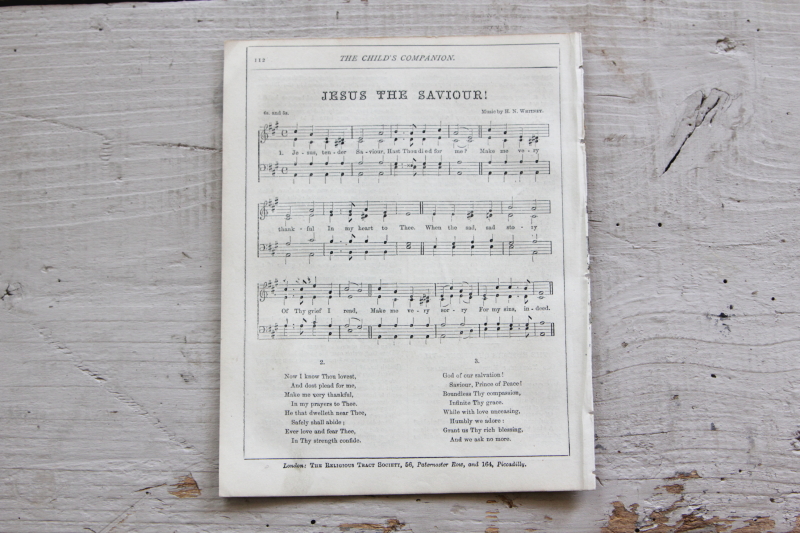 112
THE CHILD'S COMPANION.
JESUS THE SAVIOUR!
6s. and 5s.
Music by H. N. Whitney.
1. Je - sus, ten - der Sa - viour, Hast Thou died for me? Make me ve - ry
thank - ful In my heart to Thee. When the sad, sad sto - ry
Of Thy grief I read, Make me ve - ry sor - ry For my sins, in - deed.
2.
Now I know Thou lovest,
And dost plead for me,
Make me very thankful,
In my prayers to Thee.
He that dwelleth near Thee,
Safely shall abide;
Ever love and fear Thee,
In Thy strength confide.
3.
God of our salvation!
Saviour, Prince of Peace!
Boundless Thy compassion,
Infinite Thy grace.
While with love unceasing,
Humbly we adore:
Grant us Thy rich blessing,
And we ask no more.
London: THE RELIGIOUS TRACT SOCIETY, 56, Paternoster Row, and 164, Piccadilly.